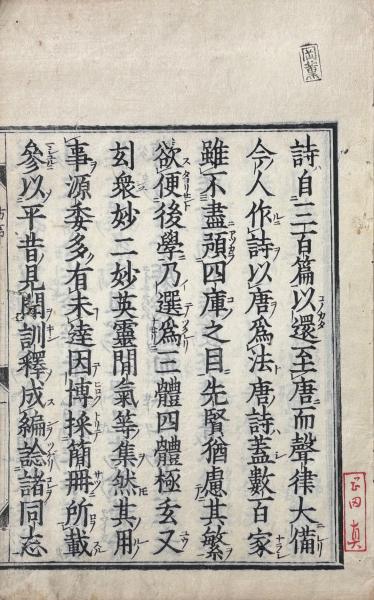 詩自三百篇以還至唐而聲律大備
今人作詩以唐爲法唐詩蓋數百家
雖不盡預四庫之目先賢猶慮其繁
欲便後學乃選爲三體四體極玄又
玄衆妙二妙英靈間氣等集然其用
事源委多有未達因博採簡冊所載
參以平昔見聞訓釋成編諗諸同志